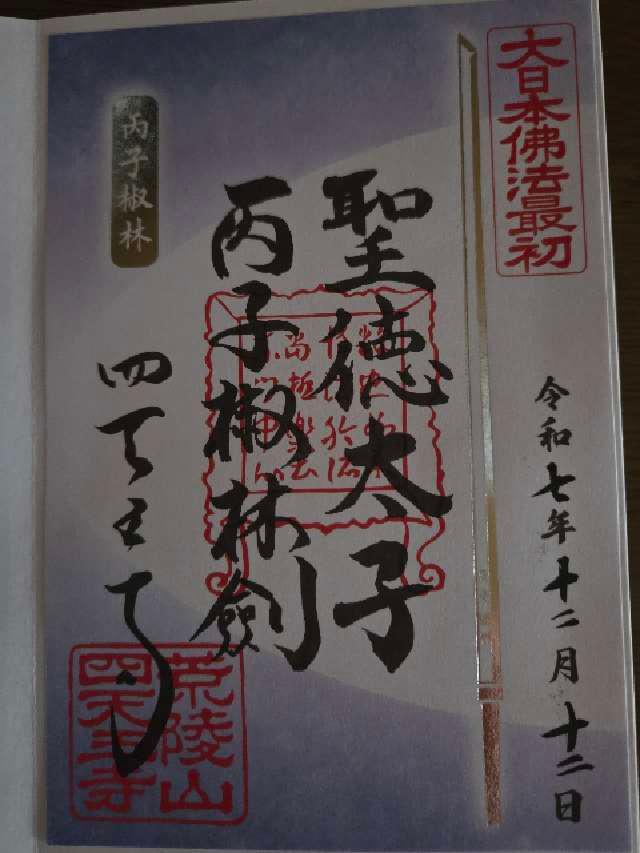 大日本佛法最初
令和七年十二月十二日
聖徳太子
丙子椒林劍
四天王寺
丙子椒林
荒陵山
四天王寺